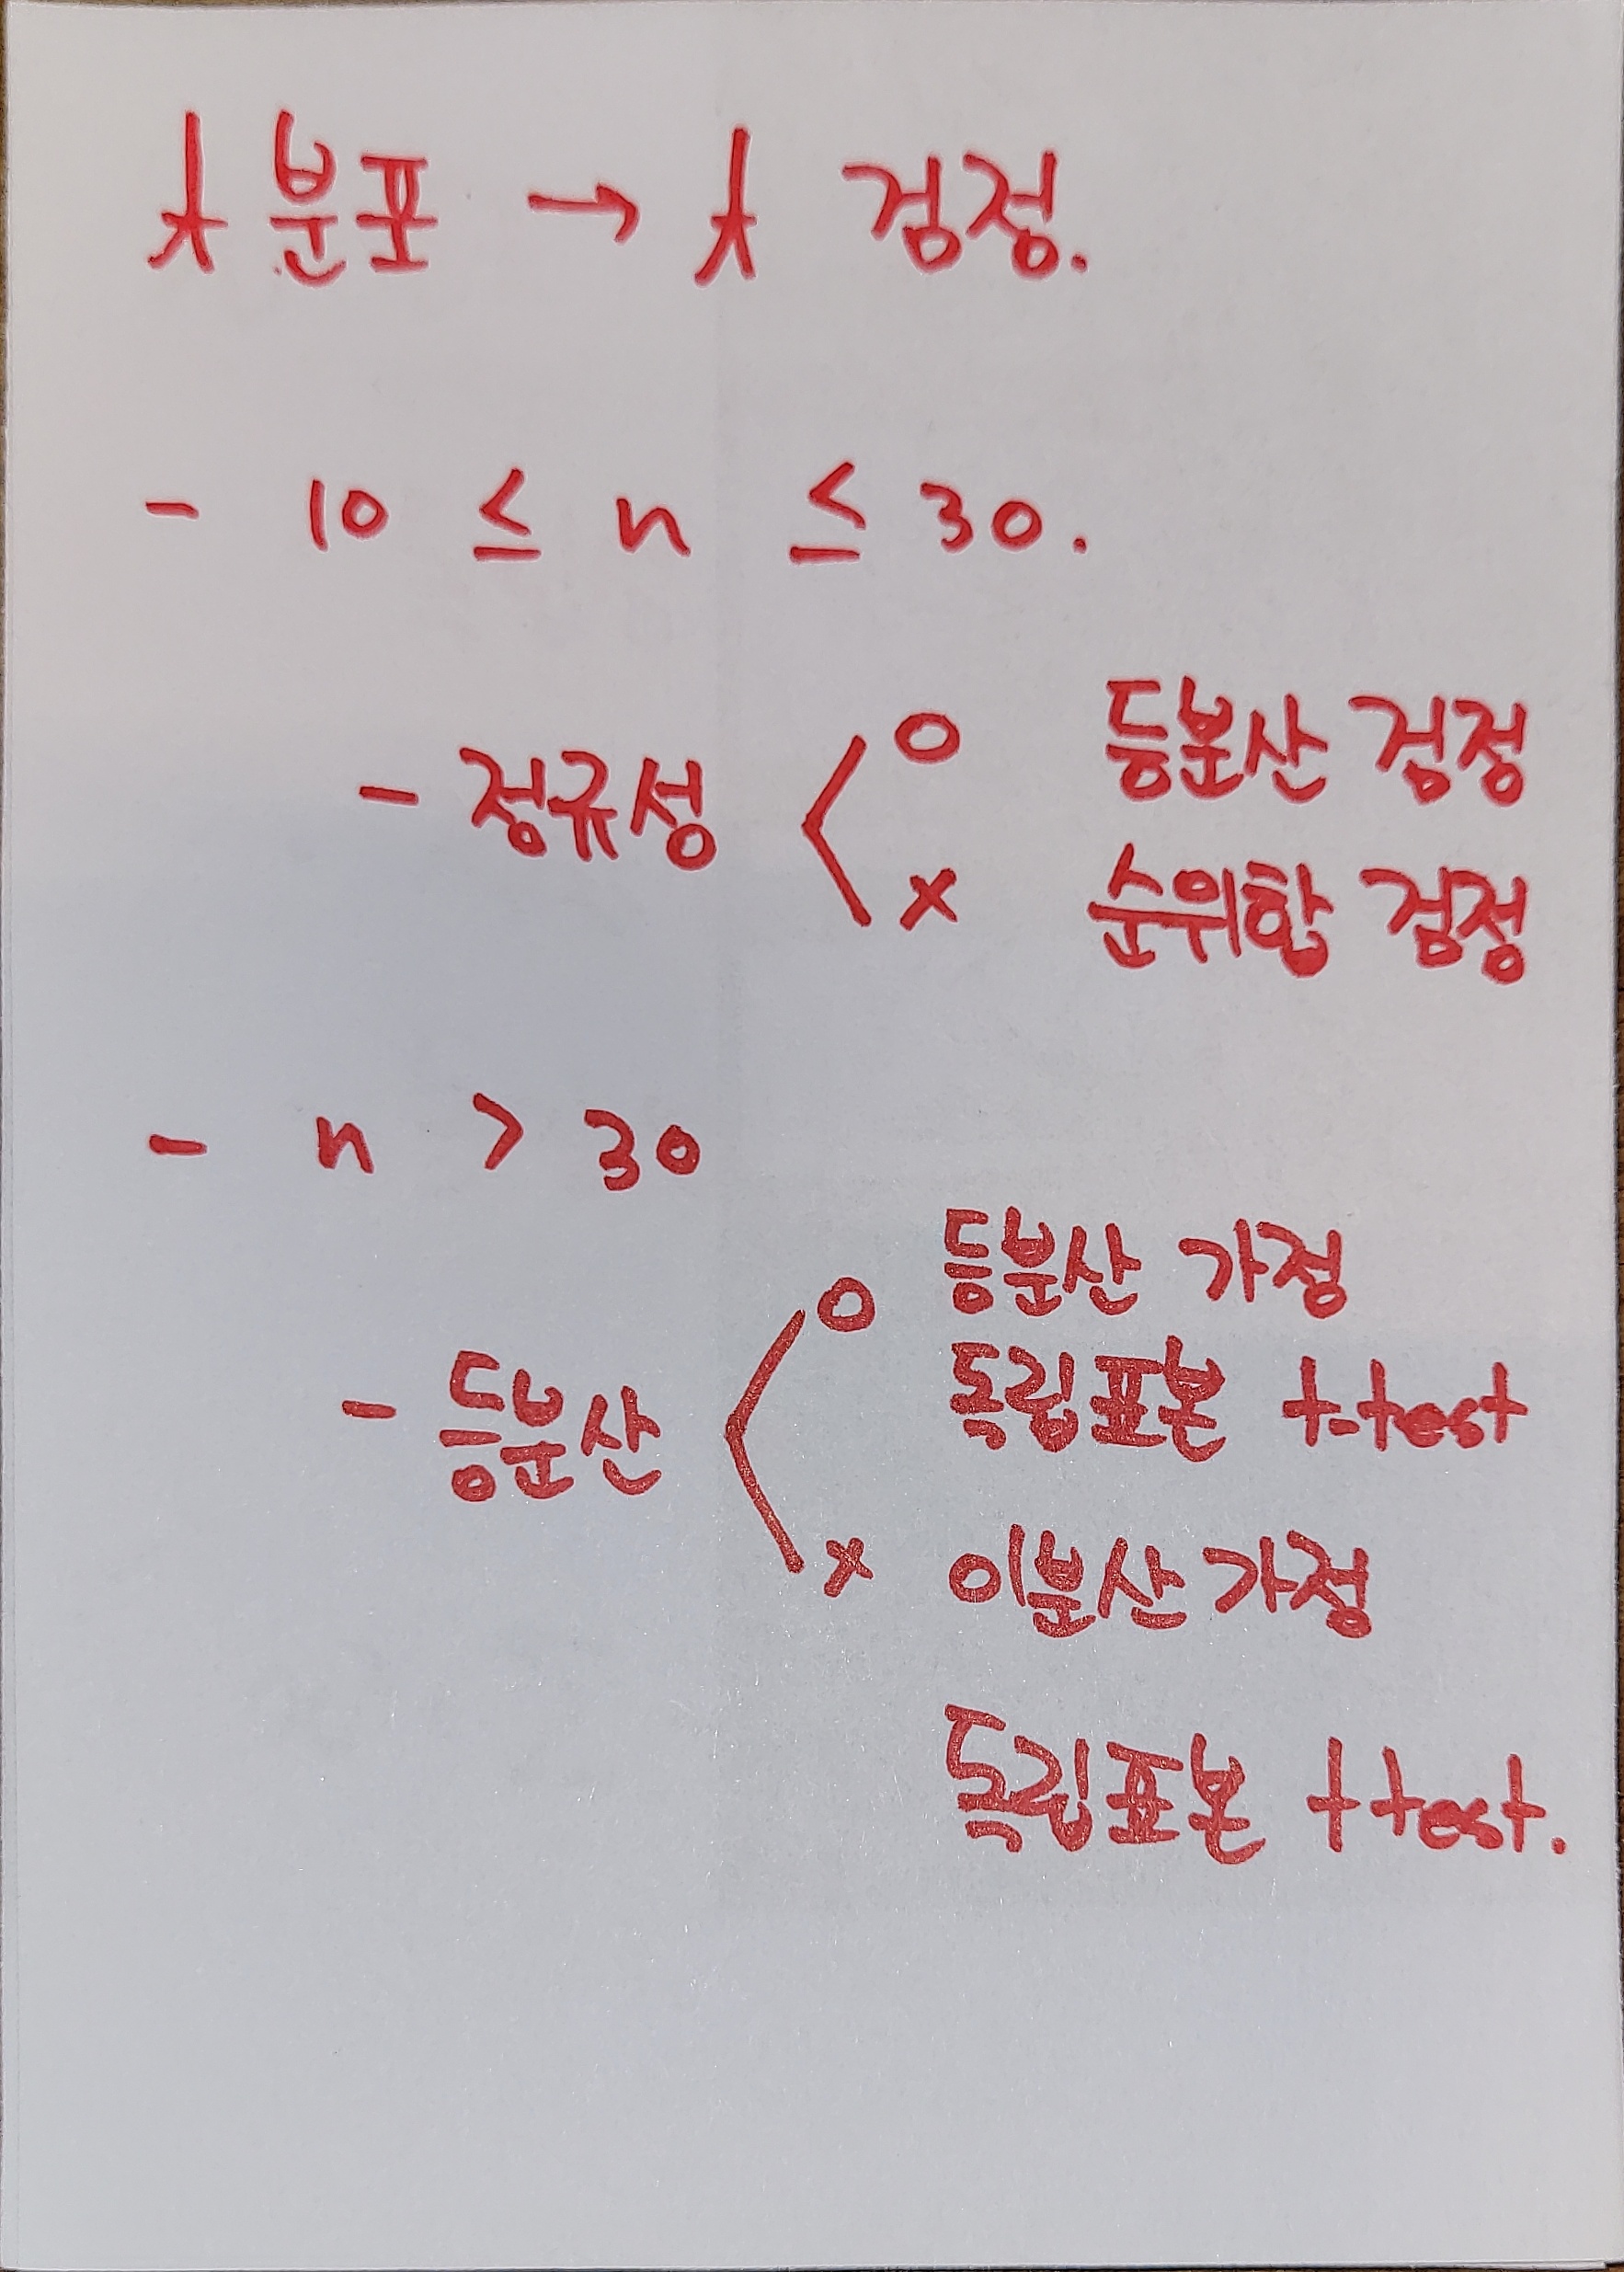 t 분포 → t 검정.
- 10 ≤ n ≤ 30.
- 정규성 < O 등분산 검정
X 순위합 검정
- n > 30
- 등분산 < O 등분산 가정
독립표본 t-test
X 이분산 가정
독립표본 t test.